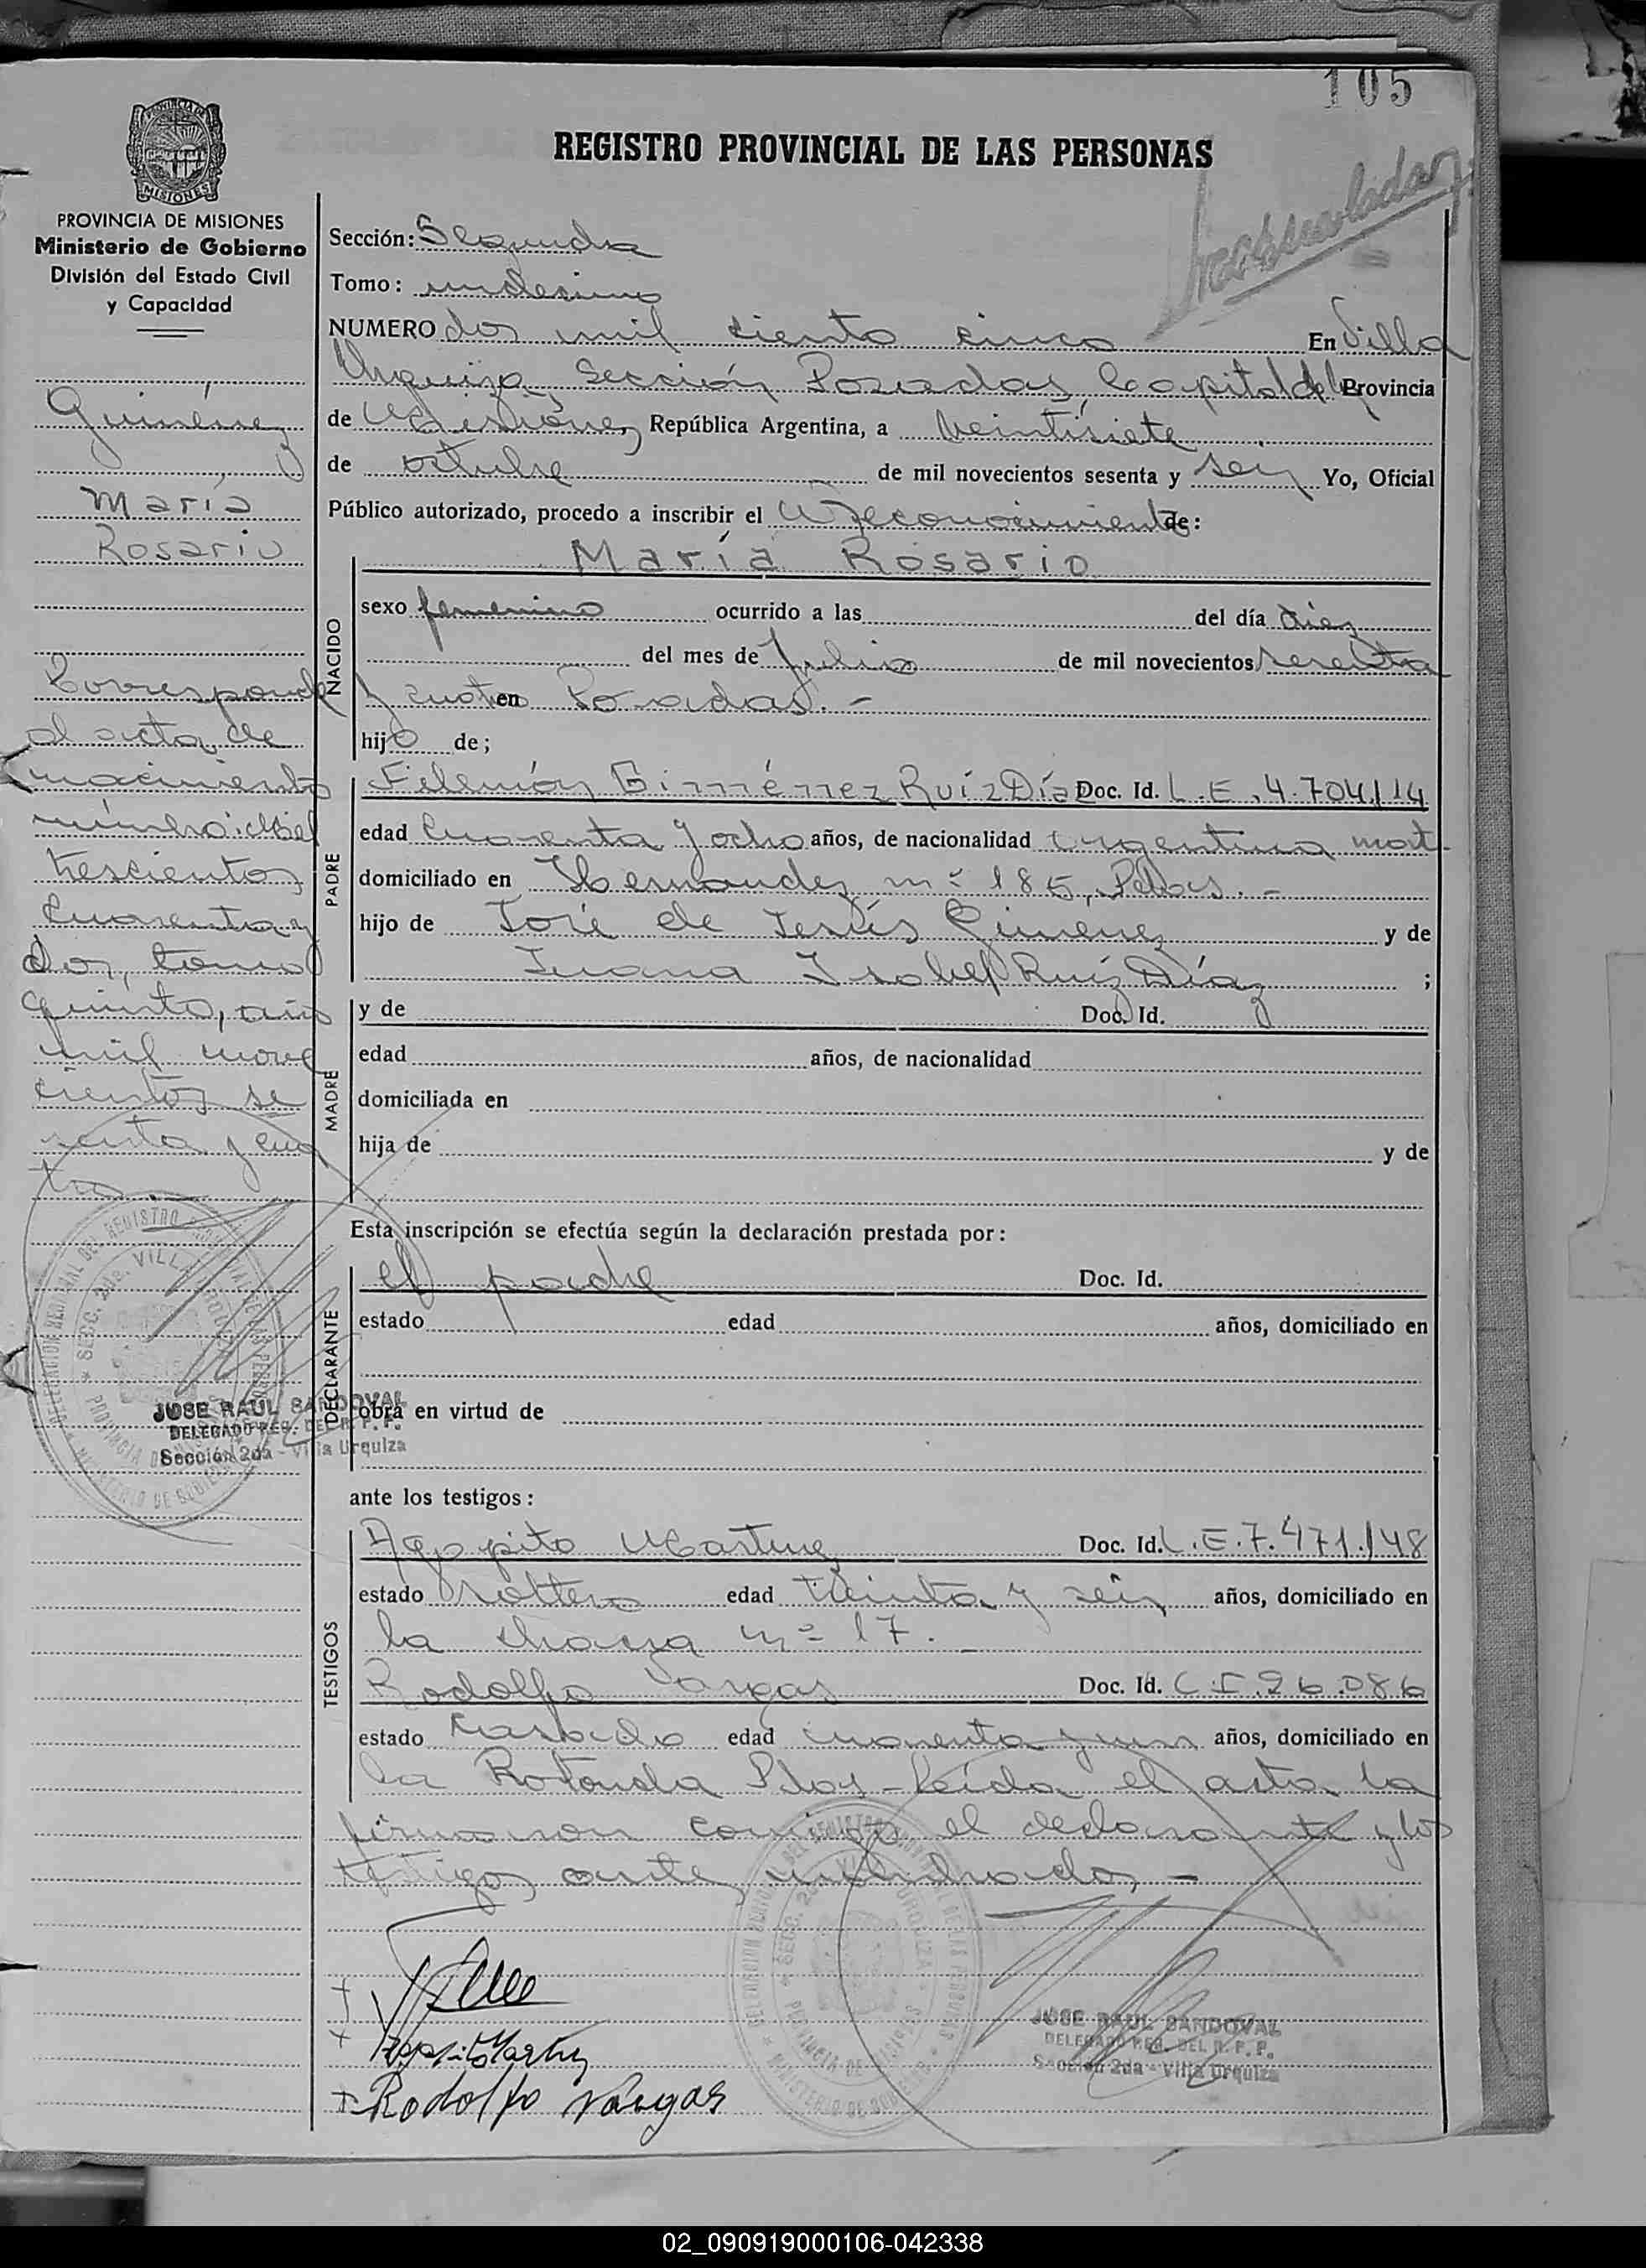 105
PROVINCIA DE MISIONES
Ministerio de Gobierno
División del Estado Civil
y Capacidad
Giménez
María
Rosario
Corresponde
al acta de
nacimiento
número: Mil
trescientos
cuarenta y
dos, tomo
quinto, año
mil nove
cientos se
senta y cua
tro.-
JOSE RAUL SANDOVAL
DELEGADO REG. DEL R. P. P.
Sección 2da - Villa Urquiza
REGISTRO PROVINCIAL DE LAS PERSONAS
Sección: Segunda
Tomo: undécimo
NUMERO dos mil ciento cinco En Villa
Urquiza Sección Posadas, Capital de la Provincia
de Misiones, República Argentina, a veintisiete
de octubre de mil novecientos sesenta y seis Yo, Oficial
Público autorizado, procedo a inscribir el Reconocimiento de:
NACIDO
María Rosario
sexo femenino ocurrido a las del día diez
del mes de Julio de mil novecientos sesenta
y cuatro en Posadas. -
hijo de;
PADRE
Filemón Giménez Ruíz Díaz Doc. Id. L.E. 4.704.114
edad cuarenta y ocho años, de nacionalidad argentina nat.
domiciliado en Hernandez nº 185, Pdas. -
hijo de José de Jesús Giménez y de
Juana Isabel Ruíz Díaz ;
MADRE
y de Doc. Id.
edad años, de nacionalidad
domiciliada en
hija de y de
Esta inscripción se efectúa según la declaración prestada por:
DECLARANTE
el padre Doc. Id.
estado edad años, domiciliado en
obra en virtud de
ante los testigos:
TESTIGOS
Agapito Martinez Doc. Id. L.E. 7.471.148
estado soltero edad treinta y seis años, domiciliado en
la chacra nº 17. -
Rodolfo Vargas Doc. Id. C.I. 26.086
estado casado edad cuarenta y un años, domiciliado en
la Rotonda Pdas - Leída el acta la
firmaron conmigo el declarante y los
testigos antes nombrados. -
Rodolfo Vargas
JOSE RAUL SANDOVAL
DELEGADO REG. DEL R. P. P.
Sección 2da - Villa Urquiza
02_090919000106-042338